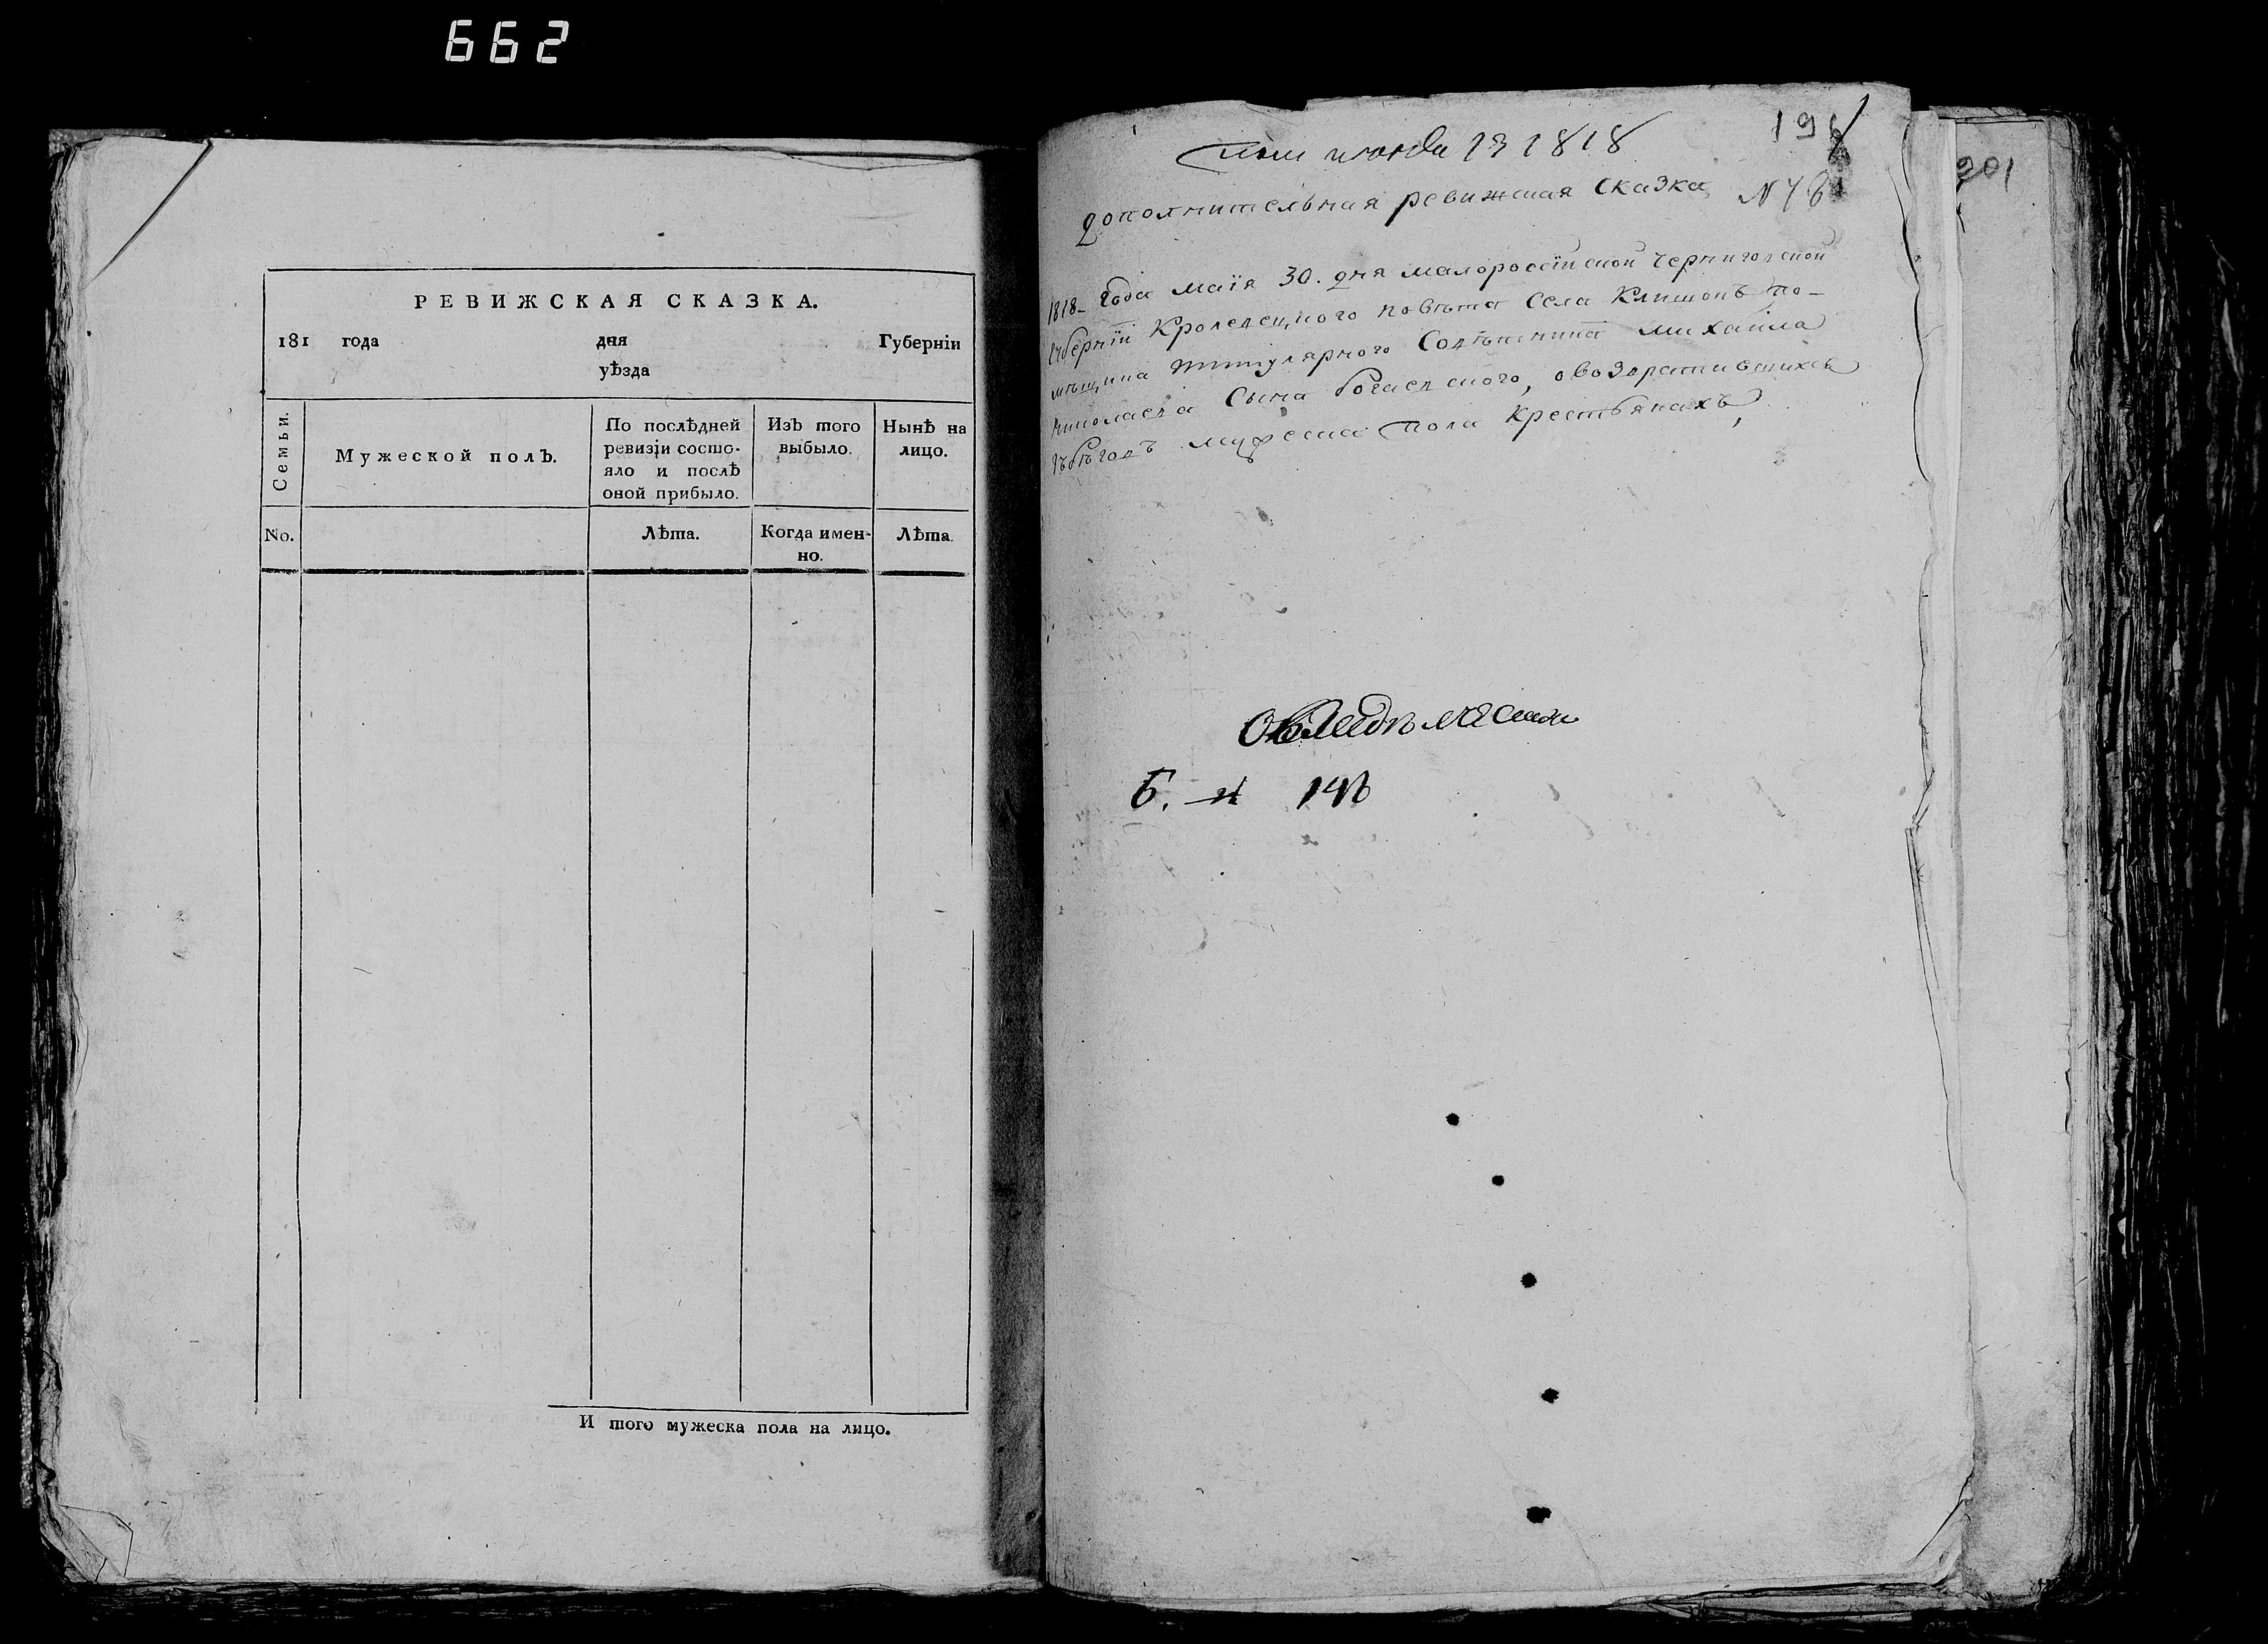 662
РЕВИЖСКАЯ СКАЗКА.
181 года дня Губерніи
уѣзда
Семьи.
Мужеской полъ.
По послѣдней
ревизіи состо-
яло и послѣ
оной прибыло.
Изъ того
выбыло.
Нынѣ на
лицо.
No.
Лѣта.
Когда имен-
но.
Лѣта.
И того мужеска пола на лицо.
201
1818
дополнительная ревижская сказка
1818– года маія 30. дня малороссійской Черниговской
губерніи Кролевецкого повѣта села Клишокъ по-
мѣщика титулярного Совѣтника михайла
николаева Сына богаевского, о возвратившихся
зъ бѣговъ мужеска пола крестьянахъ,
Б.